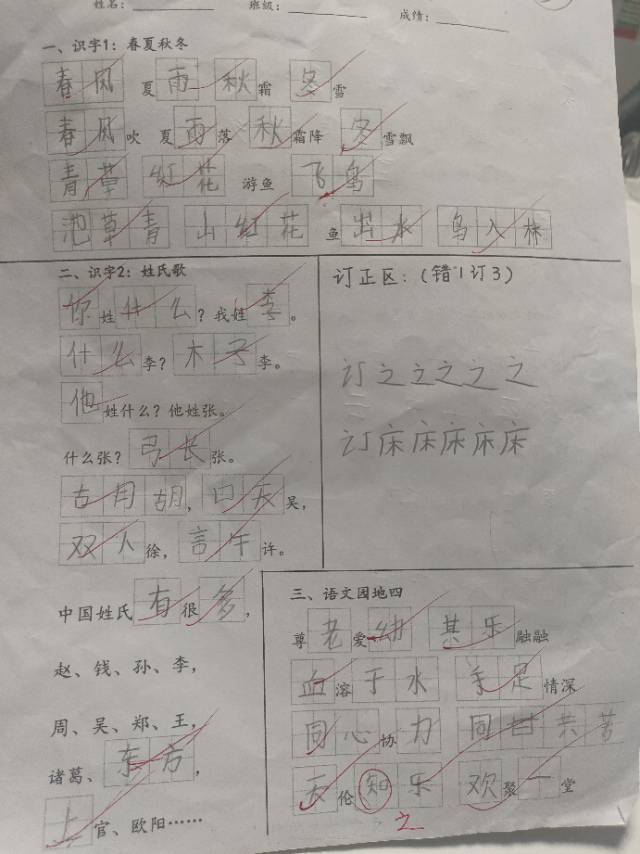 姓名： 班级： 成绩：
一、识字1：春夏秋冬
春风 夏雨 秋霜 冬雪
春风吹 夏雨落 秋霜降 冬雪飘
青草 红花 游鱼 飞鸟
池草青 山红花 鱼出水 鸟入林
二、识字2：姓氏歌
你姓什么？我姓李。
什么李？木子李。
他姓什么？他姓张。
什么张？弓长张。
古月胡，口天吴，
双人徐，言午许。
中国姓氏有很多，
赵、钱、孙、李，
周、吴、郑、王，
诸葛、东方，
上官、欧阳……
订正区：（错1订3）
订之之之之之
订床床床床床
三、语文园地四
尊老爱幼 其乐融融
血溶于水 手足情深
同心协力 同甘共苦
天伦知乐 欢聚一堂
之